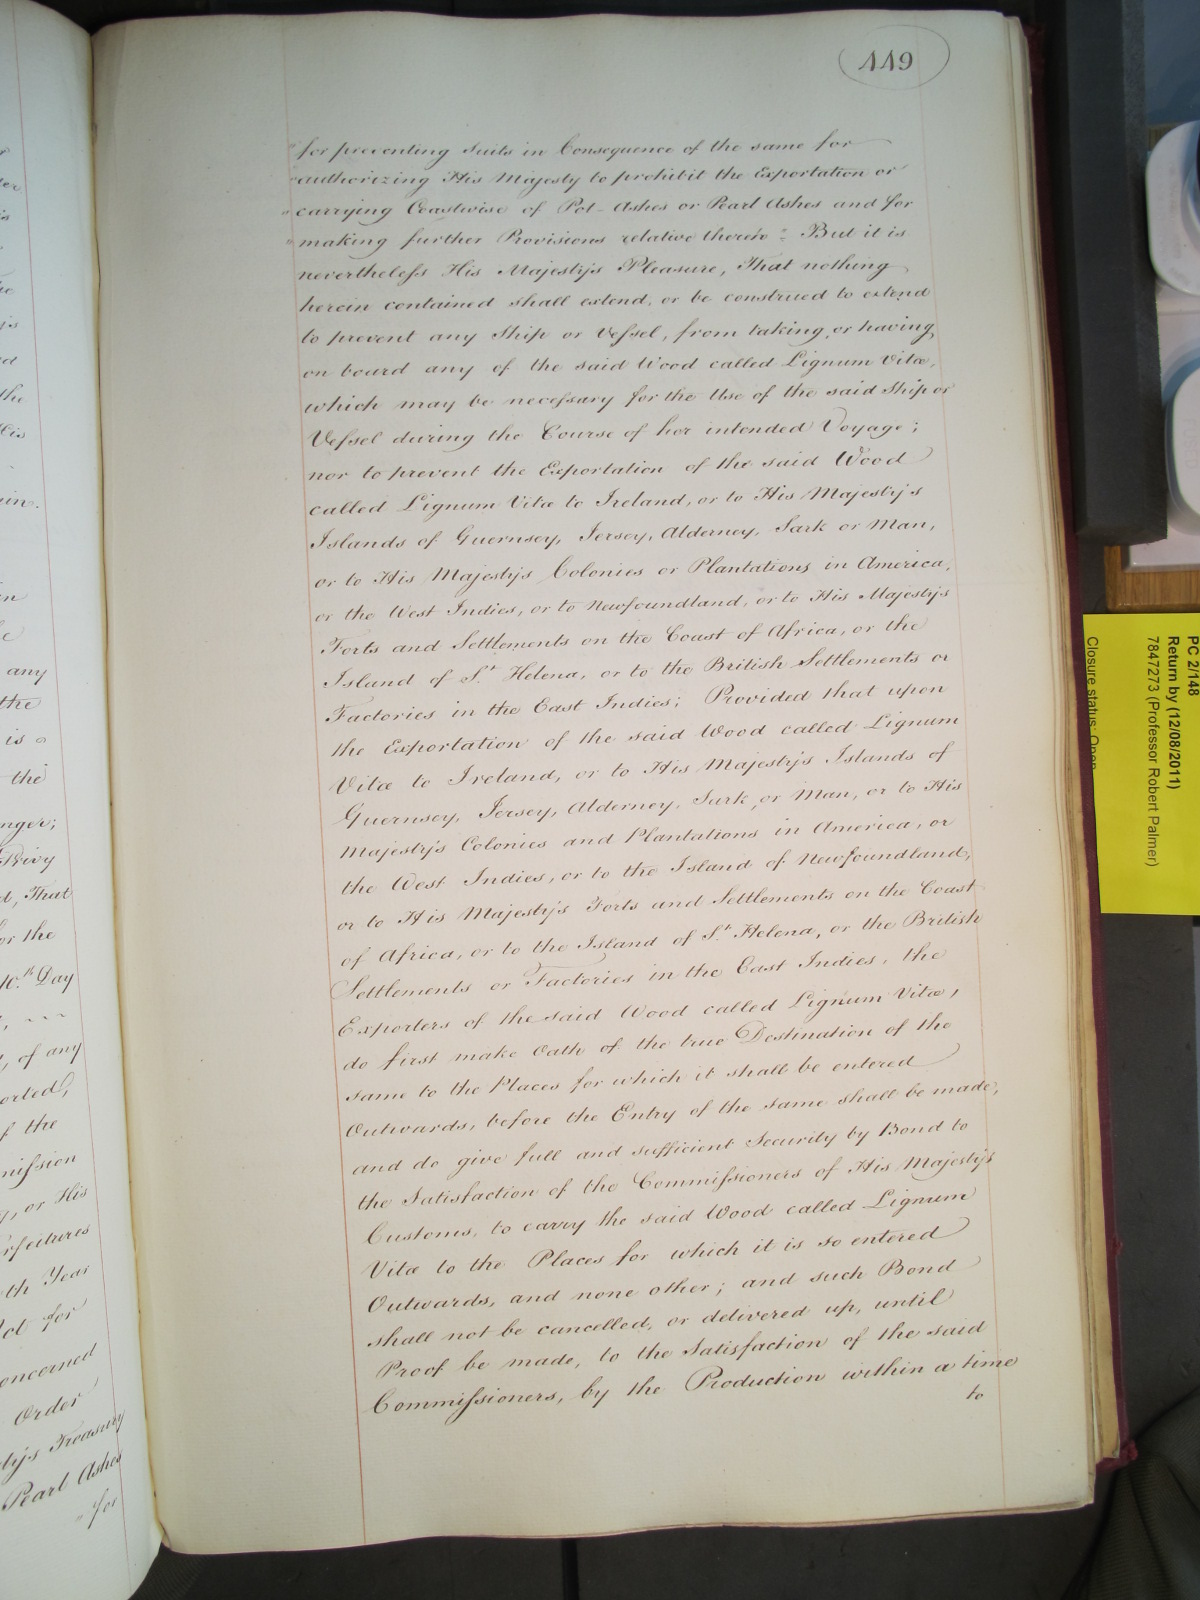 449
"for preventing Suits in Consequence of the same for
"authorizing His Majesty to prohibit the Exportation or
"carrying Coastwise of Pot-Ashes or Pearl Ashes and for
"making further Provisions relative thereto": But it is
nevertheless His Majesty's Pleasure, That nothing
herein contained shall extend, or be construed to extend
to prevent any Ship or Vessel, from taking, or having
on board any of the said Wood called Lignum Vitæ,
which may be necessary for the Use of the said Ship or
Vessel during the Course of her intended Voyage;
nor to prevent the Exportation of the said Wood
called Lignum Vitæ to Ireland, or to His Majesty's
Islands of Guernsey, Jersey, Alderney, Sark or Man,
or to His Majesty's Colonies or Plantations in America,
or the West Indies, or to Newfoundland, or to His Majesty's
Forts and Settlements on the Coast of Africa, or the
Island of St. Helena, or to the British Settlements or
Factories in the East Indies; Provided that upon
the Exportation of the said Wood called Lignum
Vitæ to Ireland, or to His Majesty's Islands of
Guernsey, Jersey, Alderney, Sark, or Man, or to His
Majesty's Colonies and Plantations in America, or
the West Indies, or to the Island of Newfoundland,
or to His Majesty's Forts and Settlements on the Coast
of Africa, or to the Island of St. Helena, or the British
Settlements or Factories in the East Indies, the
Exporters of the said Wood called Lignum Vitæ,
do first make Oath of the true Destination of the
same to the Places for which it shall be entered
Outwards, before the Entry of the same shall be made,
and do give full and sufficient Security by Bond to
the Satisfaction of the Commissioners of His Majesty's
Customs, to carry the said Wood called Lignum
Vitæ to the Places for which it is so entered
Outwards, and none other; and such Bond
shall not be cancelled, or delivered up, until
Proof be made, to the Satisfaction of the said
Commissioners, by the Production within a time
to
any
the
is
the
Privy
, That
or the
10.th Day
, of any
f the
, or His
th Year
for
oncerned
Order
Treasury
Pearl Ashes
"for
PC 2/148
Return by (12/08/2011)
7847273 (Professor Robert Palmer)
Closure status: Open